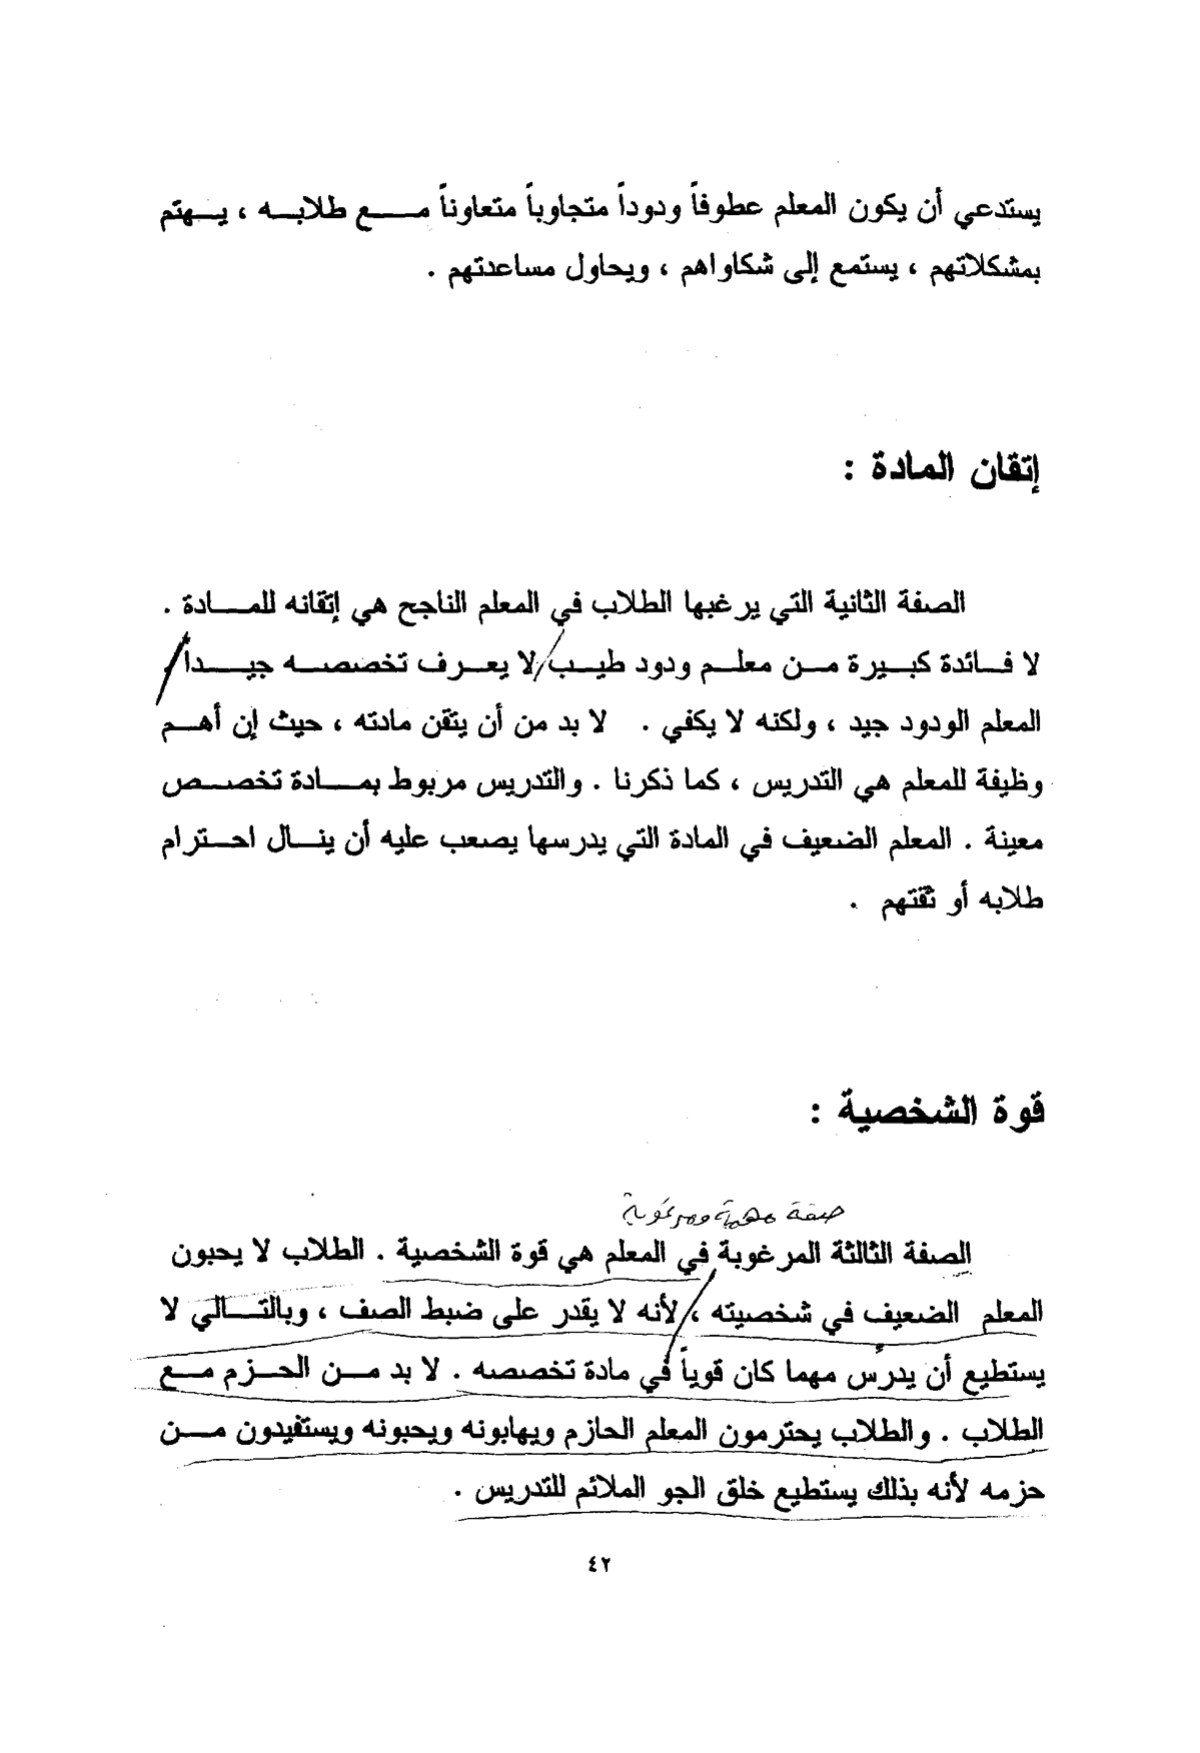 يستدعي أن يكون المعلم عطوفاً ودوداً متجاوباً متعاوناً مع طلابه ، يهتم
بمشكلاتهم ، يستمع إلى شكاواهم ، ويحاول مساعدتهم .
إتقان المادة :
الصفة الثانية التي يرغبها الطلاب في المعلم الناجح هي إتقانه للمادة .
لا فائدة كبيرة من معلم ودود طيب لا يعرف تخصصه جيداً
المعلم الودود جيد ، ولكنه لا يكفي . لا بد من أن يتقن مادته ، حيث إن أهم
وظيفة للمعلم هي التدريس ، كما ذكرنا . والتدريس مربوط بمادة تخصص
معينة . المعلم الضعيف في المادة التي يدرسها يصعب عليه أن ينال احترام
طلابه أو ثقتهم .
قوة الشخصية :
صفة مهمة ومرغوبة
الصفة الثالثة المرغوبة في المعلم هي قوة الشخصية . الطلاب لا يحبون
المعلم الضعيف في شخصيته ، لأنه لا يقدر على ضبط الصف ، وبالتالي لا
يستطيع أن يدرّس مهما كان قوياً في مادة تخصصه . لا بد من الحزم مع
الطلاب . والطلاب يحترمون المعلم الحازم ويهابونه ويحبونه ويستفيدون من
حزمه لأنه بذلك يستطيع خلق الجو الملائم للتدريس .
٤٢